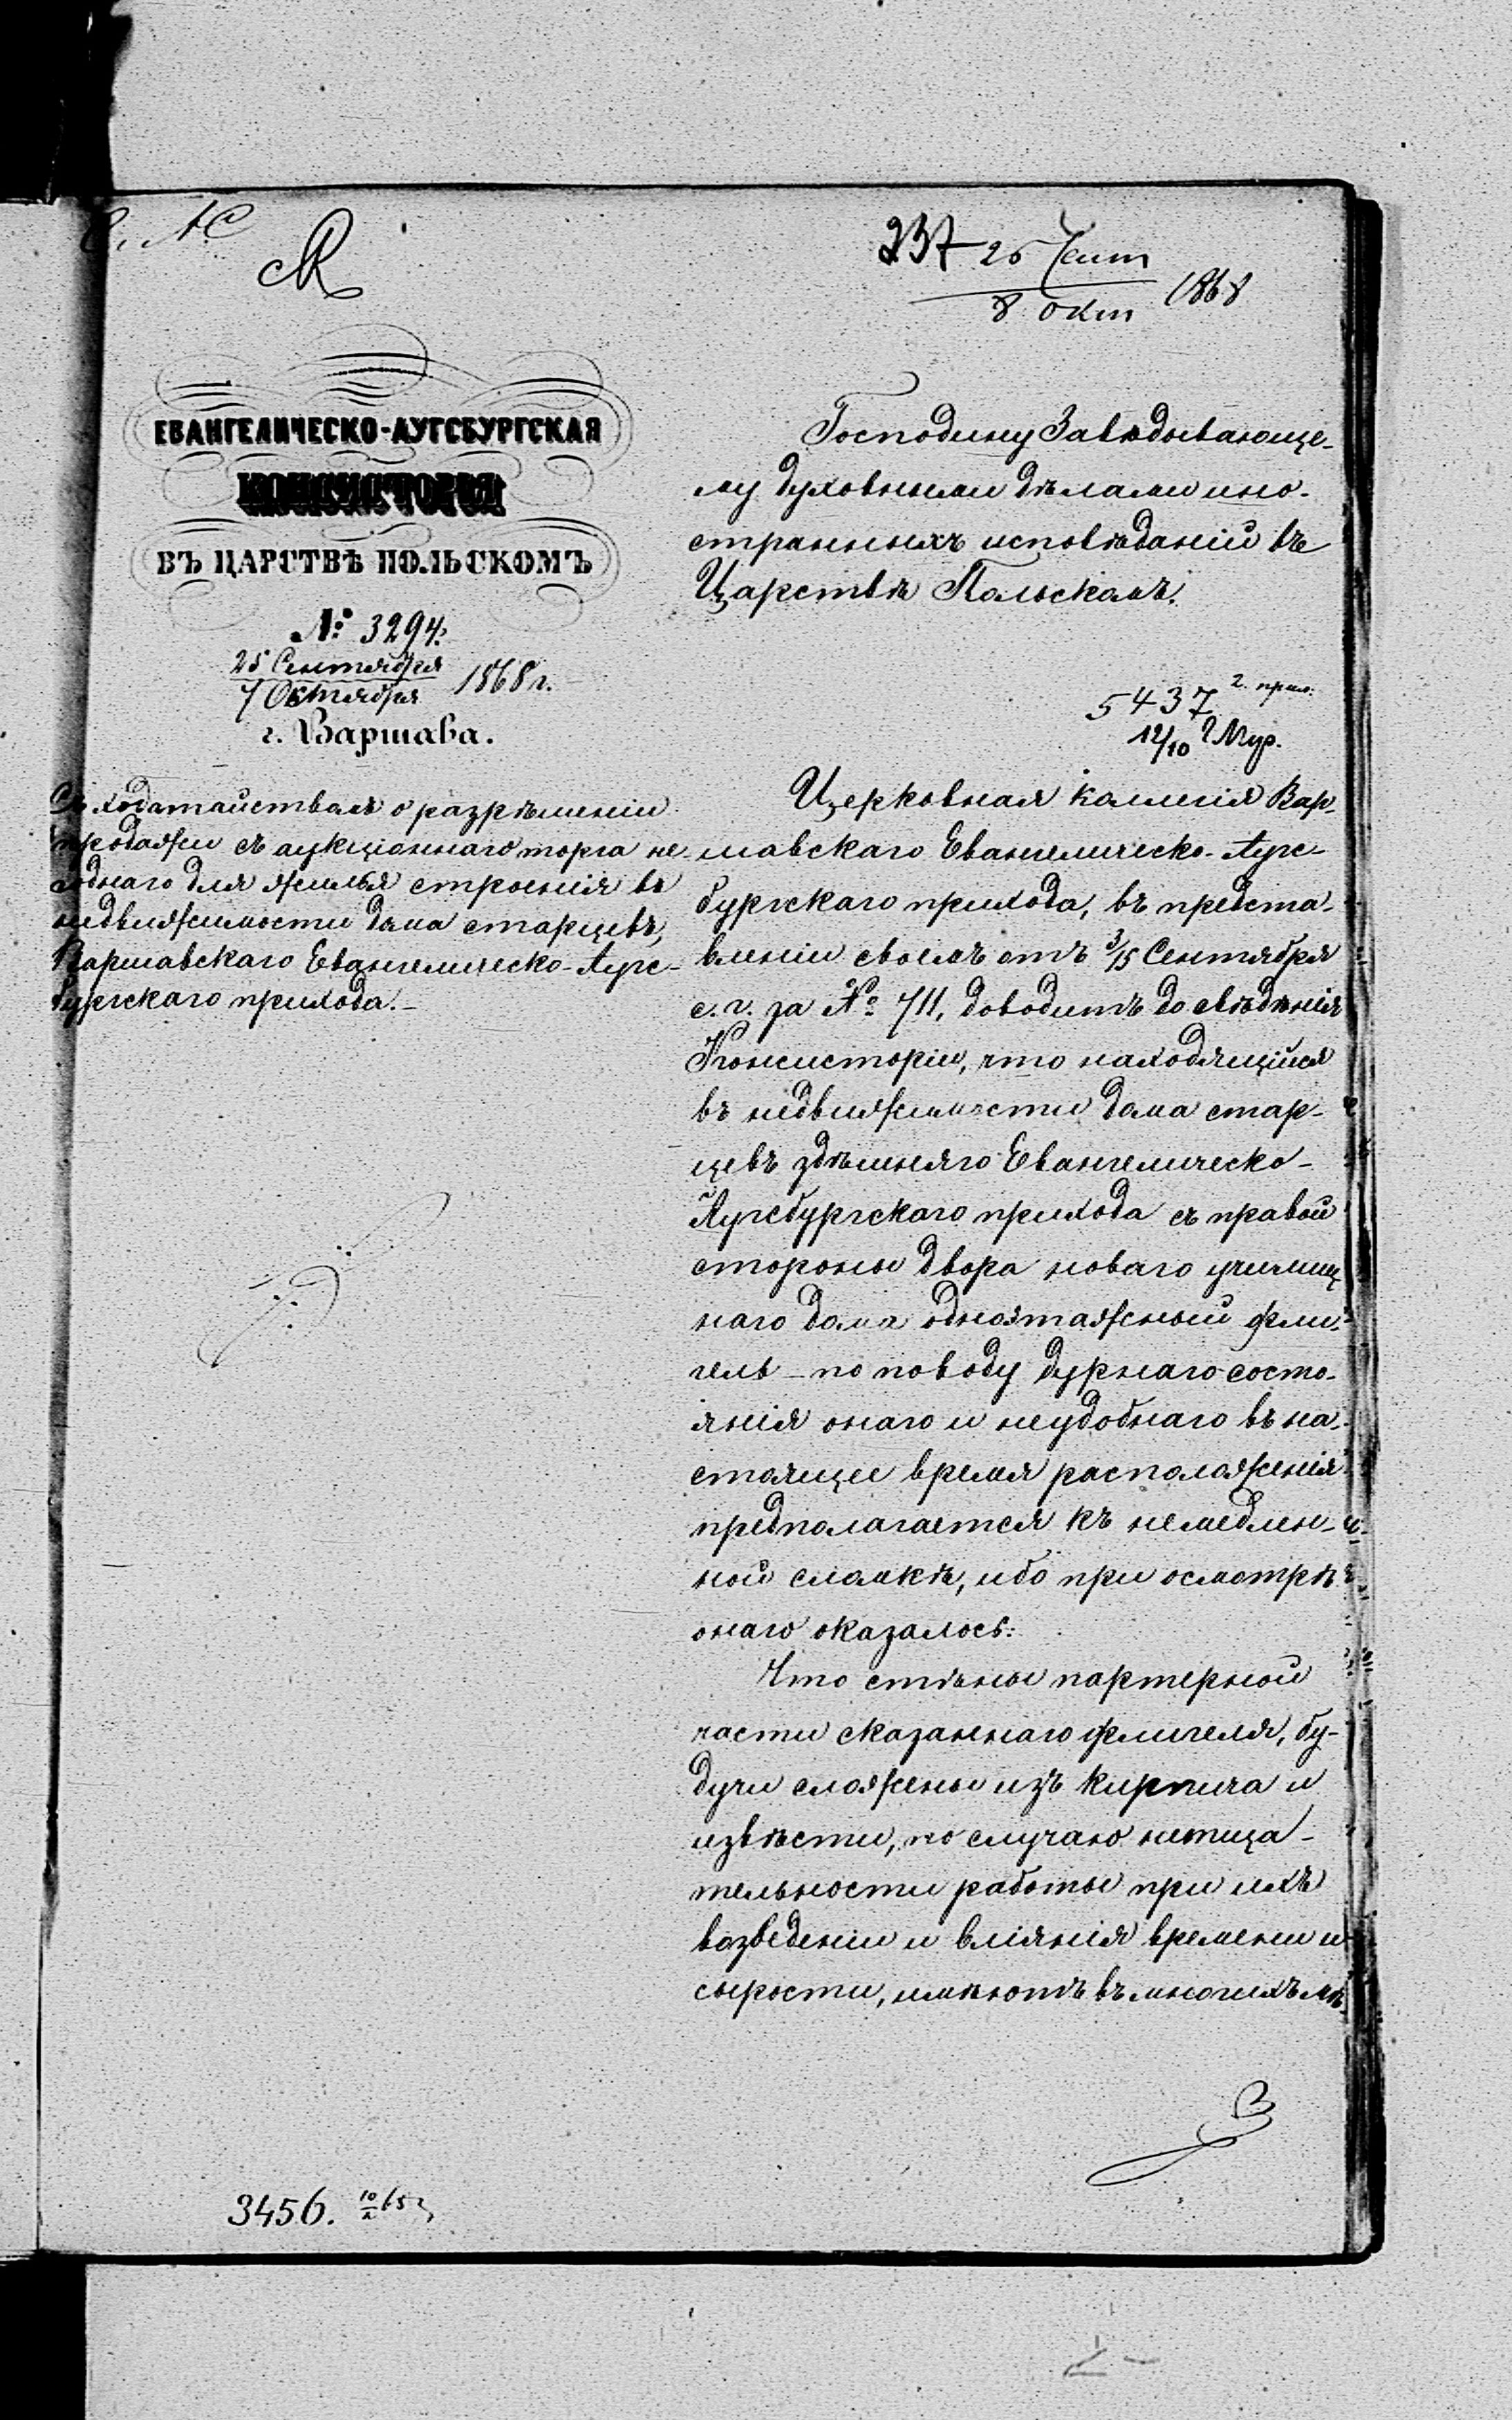 237 25 Сент
8 Окт 1868
ЕВАНГЕЛИЧЕСКО-АУГСБУРГСКАЯ
КОНСИСТОРІЯ
ВЪ ЦАРСТВѢ ПОЛЬСКОМЪ
№ 3294.
25 Сентября
7 Октября 1868 г.
г. Варшава.
Съ ходатайствомъ о разрѣшеніи
продажи съ аукціоннаго торга не-
годнаго для жилья строенія въ
недвижимости дома старцевъ,
Варшавскаго Евангелическо-Аугс-
бургскаго прихода.-
Господину Завѣдывающе-
му духовными дѣлами ино-
странныхъ исповѣданій въ
Царствѣ Польскомъ.
5437 2. прил.
12/10
Церковная коллегія Вар-
шавскаго Евангелическо-Аугс-
бургскаго прихода, въ предста-
вленіи своемъ отъ 3/15 Сентября
с. г. за № 711, доводитъ до свѣдѣнія
Консисторіи, что находящійся
въ недвижимости дома стар-
цевъ здѣшняго Евангелическо-
Аугсбургскаго прихода съ правой
стороны двора новаго училищ
наго дома одноэтажный фли-
гель - по поводу дурнаго состо-
янія онаго и неудобнаго въ на-
стоящее время расположенія
предполагается къ немедлен-
ной сломкѣ, ибо при осмотрѣ
онаго оказалось:
Что стѣны партерной
части сказаннаго флигеля, бу-
дучи сложены изъ кирпича и
извѣсти, по случаю нетща-
тельности работы при ихъ
возведеніи и вліянія времени и
сырости, имѣютъ въ многихъ мѣ-
3456.